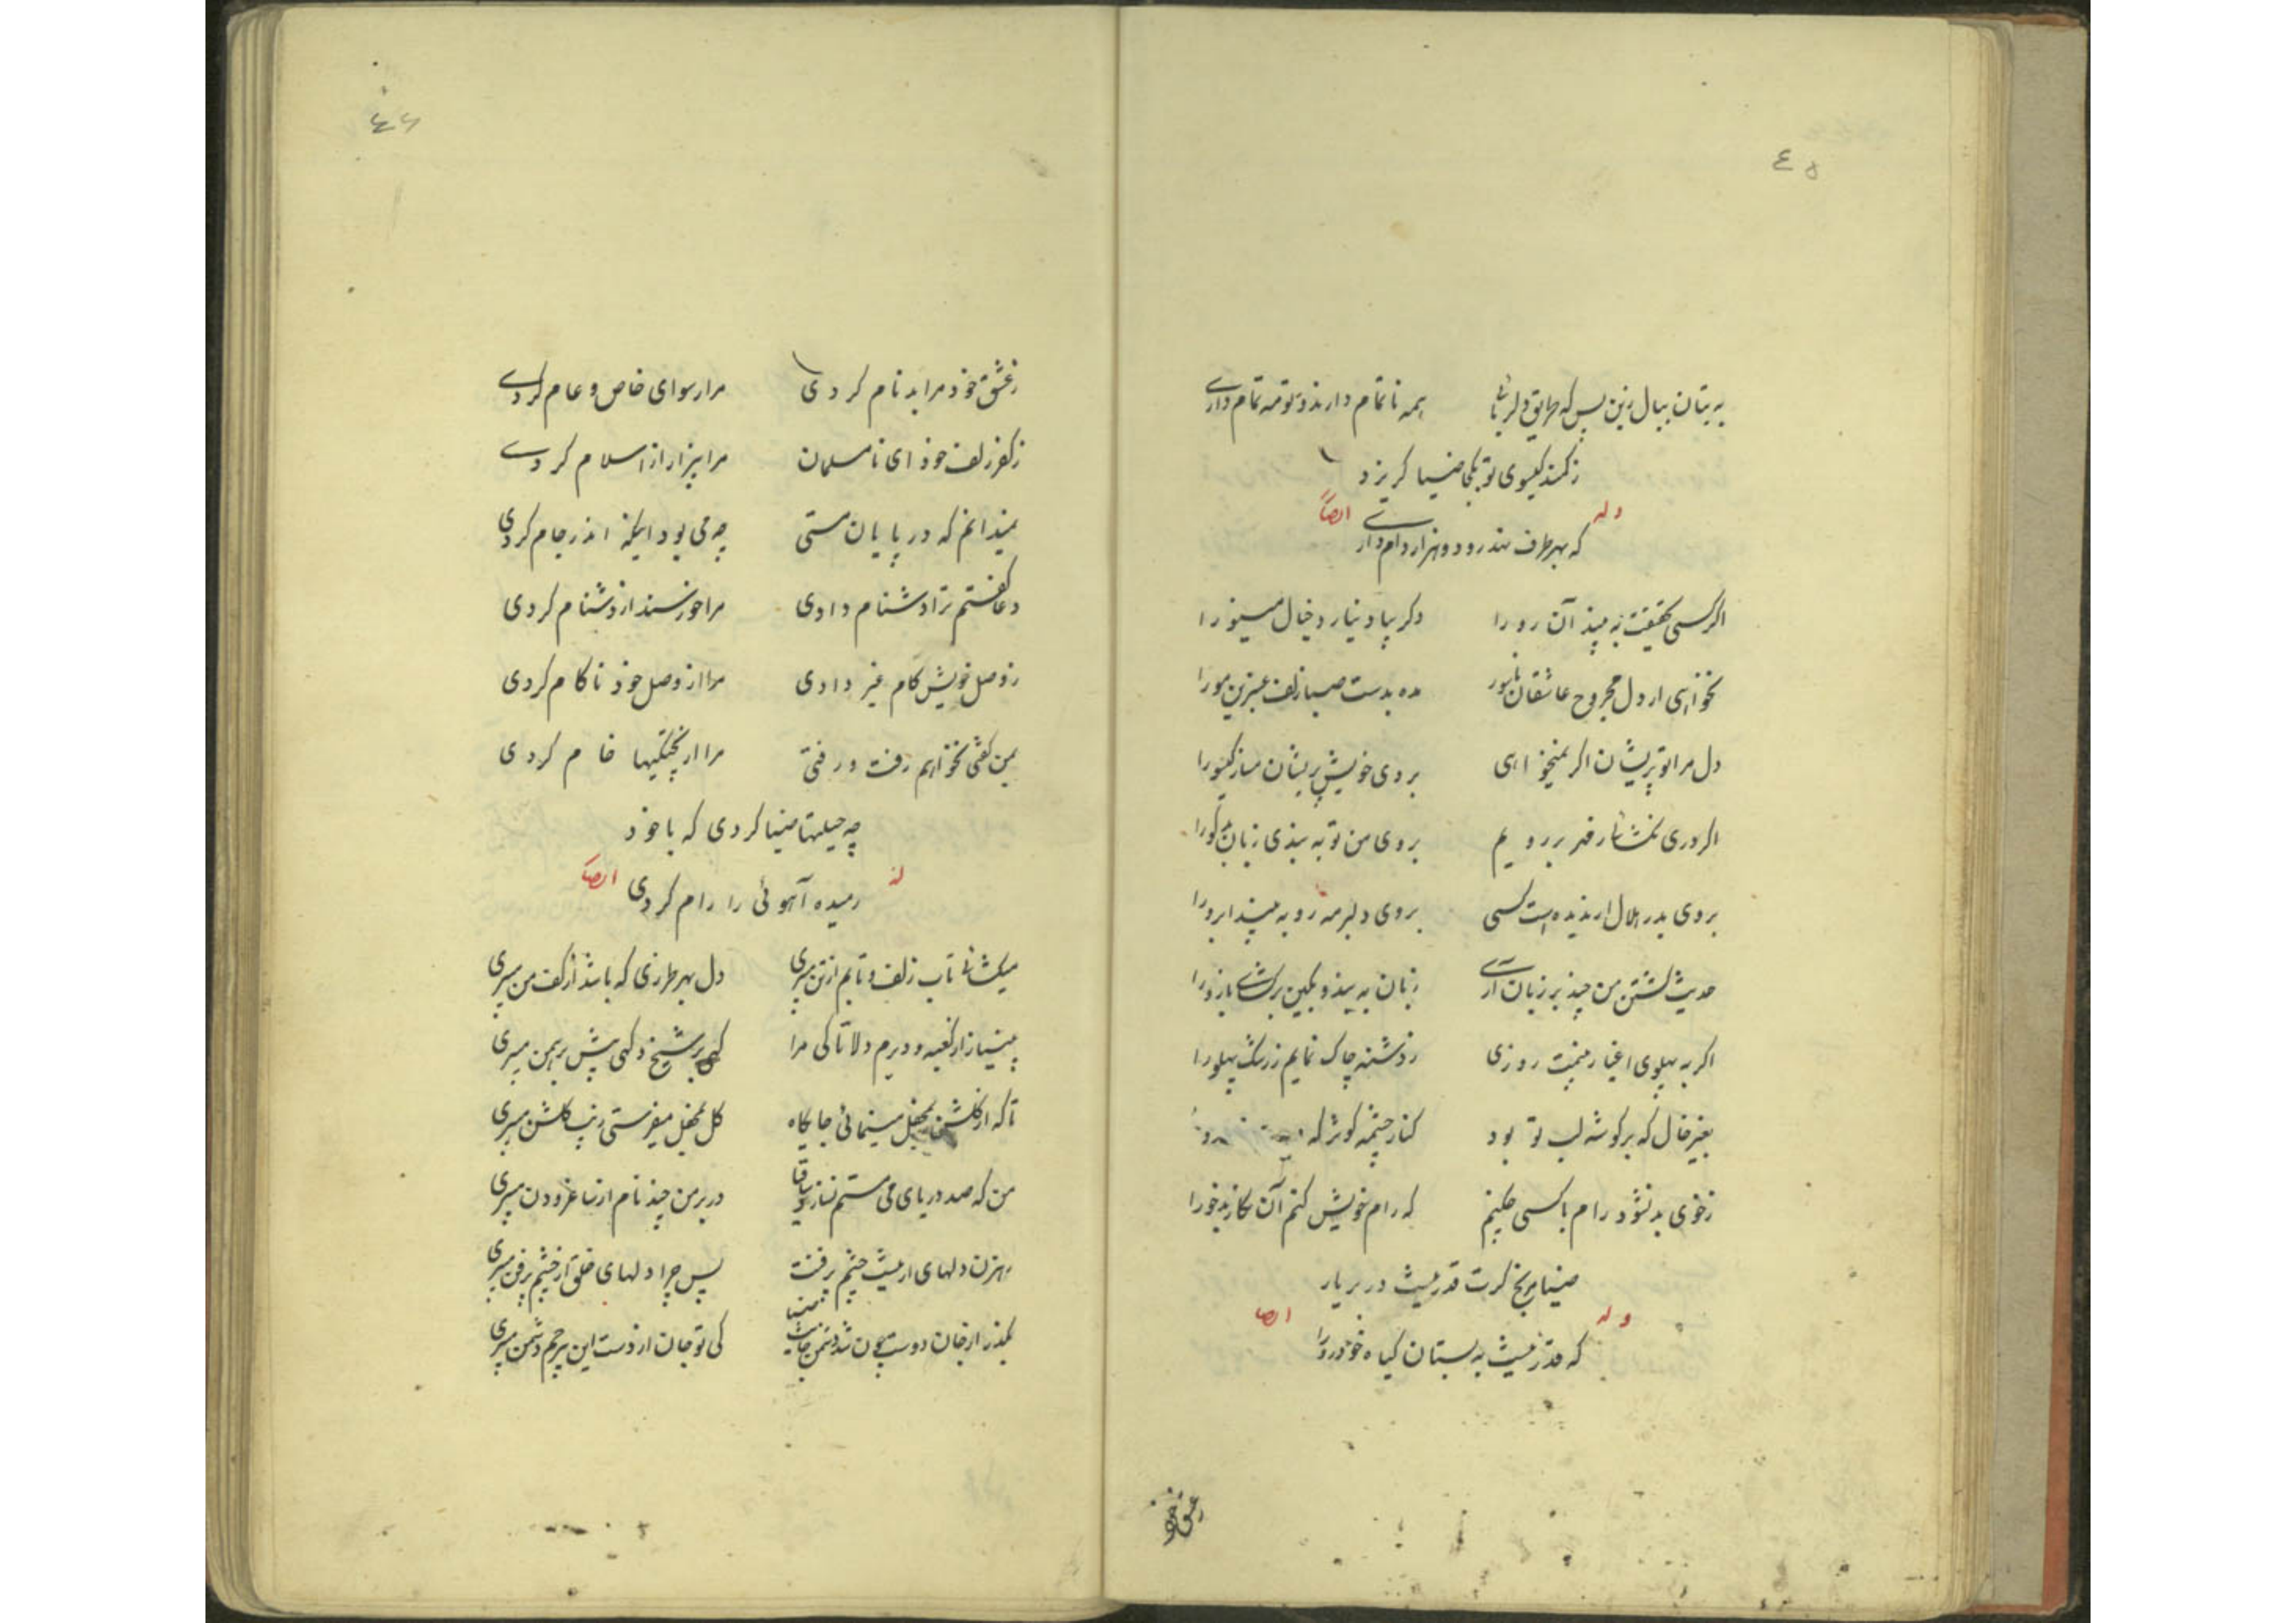 ٤٥
به بتان ببال زین پس که طریق دلربائی همه ناتمام دارند و تو مه تمام داری
زکمند کیسوی تو بکجا ضیا کریزد
وله ایضاً
که بهر طرف نهد رو دو هزار دام داری
اکر کسی بحقیقت به بیند آن رو را دکر بیاد نیارد خیال مینو را
نخواهی ار دل مجروح عاشقان ناسور مده بدست صبا زلف عنبرین مو را
دل مرا تو پریشان اکر نمیخواهی بروی خویش پریشان مساز کیسو را
اکر دری نکشاید رقیب بر رویم بروی من تو به بندی زبان بدکو را
بروی بدر هلال ار ندیده است کسی بروی دلبر مه رو به بیند ابرو را
حدیث کشتن من چند بر زبان آری زبان به بند و بکین برکشای بازو را
اکر به پهلوی اغیار بینمت روزی زدشنه چاک نمایم زرشک پهلو را
بغیر خال که بر کوشه لب تو بود کنار چشمه کوثر که
زخوی بد نشود رام با کسی چکنم که رام خویش کنم آن نکار بدخو را
ضیا مرنج کرت قدر نیست در بر یار
وله ایضا
که قدر نیست به بستان کیاه خودرو را
زعشق خود
٤٦
زعشق خود مرا بدنام کردی مرا رسوای خاص و عام کردی
زکفر زلف خود ای نامسلمان مرا بیزار از اسلام کردی
نمیدانم که در پایان مستی چه می بود اینکه اندر جام کردی
دعا کفتم ترا دشنام دادی مرا خورسند از دشنام کردی
زوصل خویش کام غیر دادی مرا از وصل خود ناکام کردی
بمن کفتی نخواهم رفت و رفتی مرا از پختکیها خام کردی
چه حیلتها ضیا کردی که با خود
له ایضاً
رمیده آهوئی را رام کردی
میکشائی تاب زلف و تابم از تن میبری دل بهر طرزی که باشد از کف من میبری
بی نیاز از کعبه و دیرم دلا تا کی مرا کهی بر شیخ و کهی پیش برهمن میبری
تا که از کلشن بمحفل مینمائی جایکاه کل بمحفل میفرستی زیب کلشن میبری
من که صد دریای می مستم نسازد ساقیا در بر من چند نام از ساغر و دن میبری
رهزن دلهای ار نیست چشم پر فنت پس چرا دلهای خلق از چشم پر فن میبری
بکذر از جان دوست چون شد دشمن جانت ضیا کی تو جان از دست این بیرحم دشمن میبری